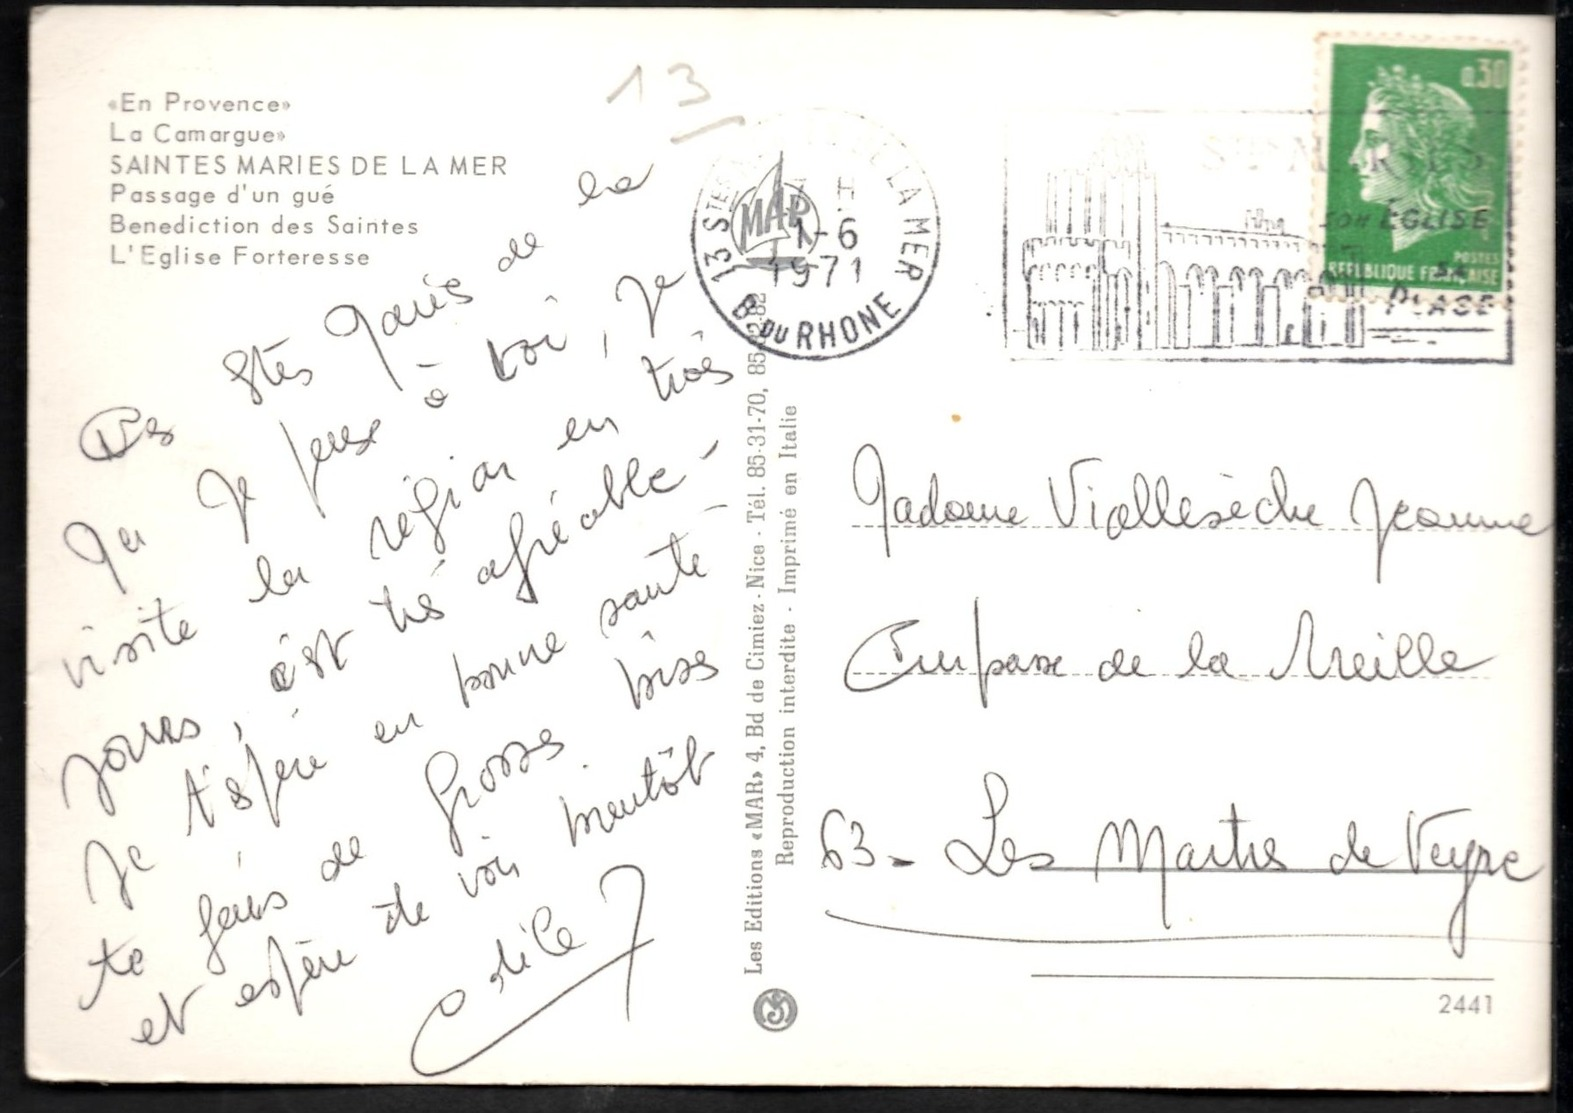 «En Provence»
La Camargue»
SAINTES MARIES DE LA MER
Passage d'un gué
Benediction des Saintes
L'Eglise Forteresse
13
Des Stes Maries de la
Mer je pense à toi, je
visite la région en trois
jours, c'est très agréable -
Je t'espère en bonne santé -
te fais de grosses bises
et espère te voir bientôt
Odile
13 STES MARIES DE LA MER
H
1-6
1971
B. DU RHONE
MAR
STES MARIES
SON ÉGLISE
SA
PLAGE
0,30
POSTES
REPUBLIQUE FRANÇAISE
Les Editions «MAR» 4, Bd de Cimiez - Nice - Tél. 85-31-70, 85-2-82
Reproduction interdite - Imprimé en Italie
Madame Viallesèche Jeanne
Impasse de la Treille
63 - Les Martres de Veyre
2441